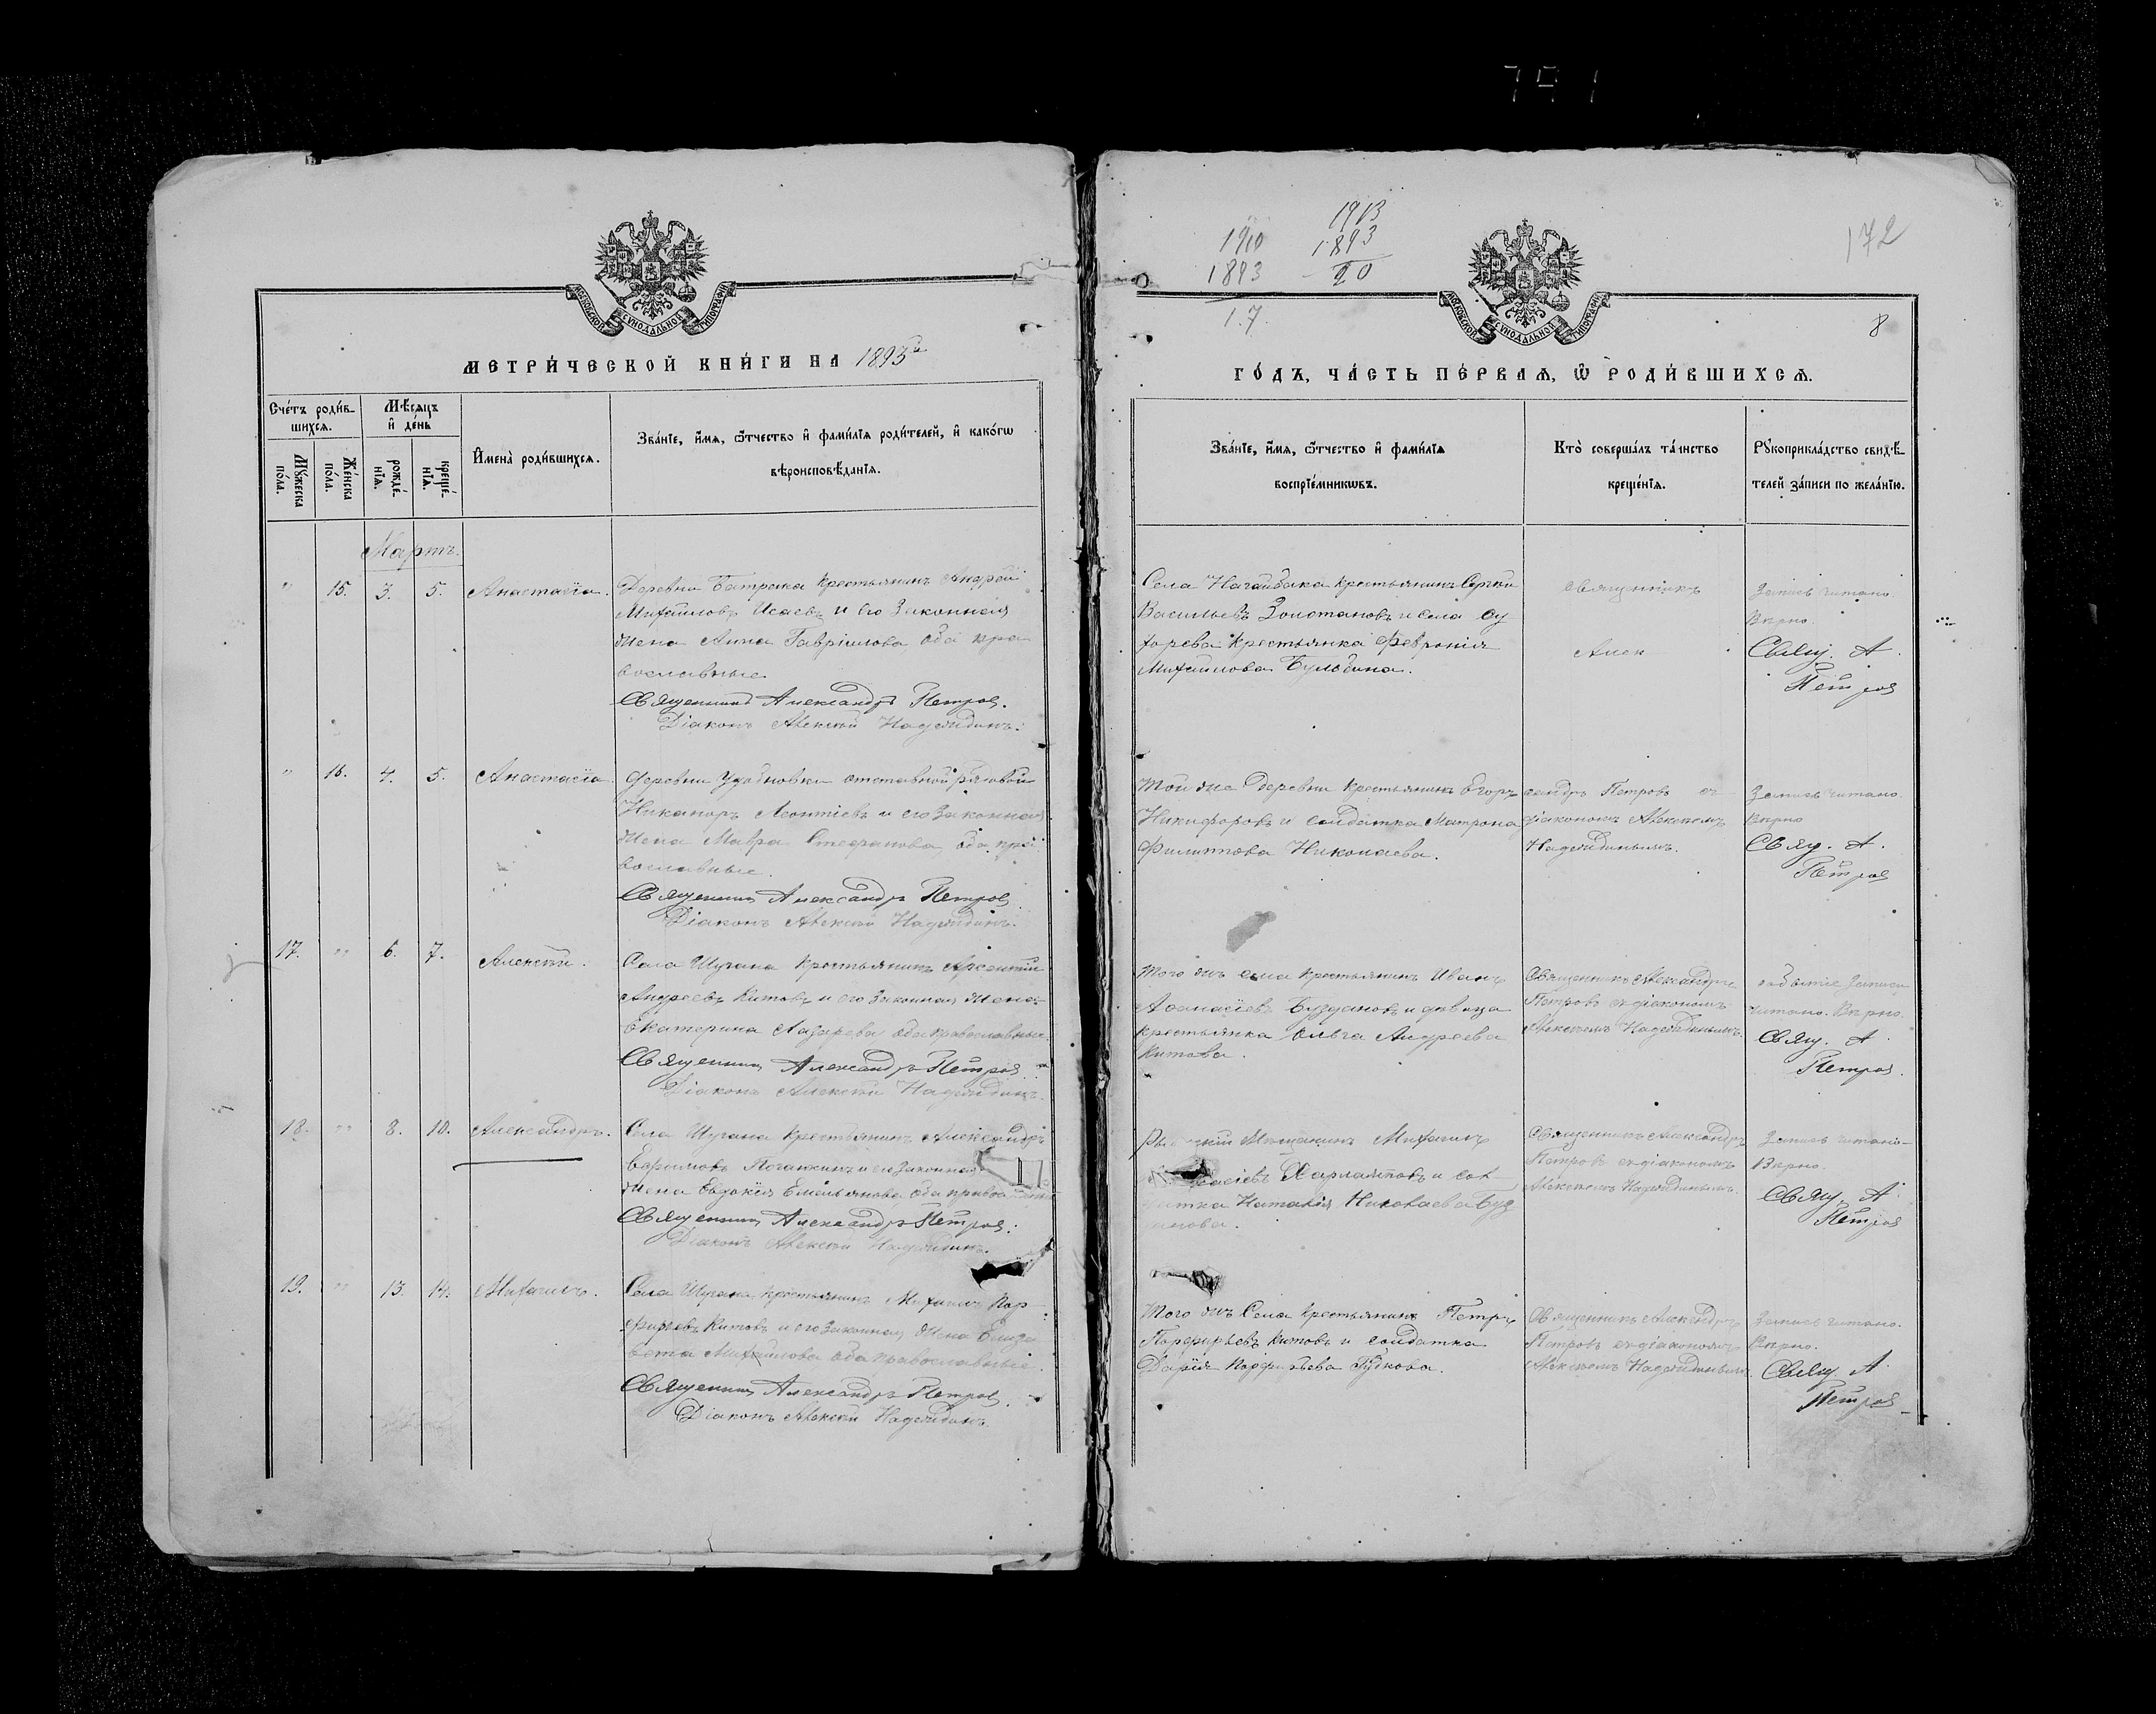 791
МОСКОВСКОЙ СѴНОДАЛЬНОЙ ТИПОГРАФІИ
МЕТРИ́ЧЕСКОЙ КНИ́ГИ НА 1893й
Сче́тъ роди́в-
шихсѧ.
Мѣ́сѧцъ
и҆ де́нь
И҆мена̀ роди́вшихсѧ.
Зва́нїе, и҆́мѧ, ѻ҆́тчество и҆ фами́лїѧ роди́телей, и҆ како́гѡ
вѣроисповѣ́данїѧ.
Мꙋ́жеска
по́ла.
Же́нска
по́ла.
рожде́-
нїѧ.
креще́-
нїѧ.
Мартъ.
" 15. 3. 5. Анастасія. Деревни Батрака крестьянинъ Андрей
Михайловъ Исаевъ и его законная
жена Анна Гавріилова оба пра
вославные.
Священникъ Александръ Петров.
Діаконъ Алексѣй Надеждинъ.
" 16. 4. 5. Анастасія. Деревни отставной рядовой
Никаноръ Леонтіевъ и его законная
жена Мавра Стефанова, оба пра
вославные.
Священник Александръ Петров
Діаконъ Алексѣй Надеждинъ.
17. " 6. 7. Алексѣй. Села Шугана крестьянинъ Арсентій
Андреевъ Китовъ и его законная жена
Екатерина Лазарева оба православные.
Священник Александръ Петров.
Діаконъ Алексѣй Надеждинъ.
18. " 8. 10. Александръ. Села Шугана крестьянинъ Александръ
Ефимовъ Поганкинъ и его законная
жена Евдокія Емельянова оба правос
Священник Александръ Петров.
Діаконъ Алексѣй Надеждинъ.
19. " 13. 14. Михаилъ. Села Шугана крестьянинъ Михаилъ Пор-
фирьевъ Китовъ и его законная жена Елиза
вета Михайлова оба православные.
Священник Александръ Петров.
Діаконъ Алексѣй Надеждинъ.
1913
1910 1893
1893 20
17.
172
МОСКОВСКОЙ СѴНОДАЛЬНОЙ ТИПОГРАФІИ
8
ГО́ДЪ, ЧА́СТЬ ПЕ́РВАѦ, Ѽ РОДИ́ВШИХСѦ.
Зва́нїе, и҆́мѧ, ѻ҆́тчество и҆ фами́лїѧ
воспрїе́мникѡвъ.
Кто̀ соверша́лъ та́инство
креще́нїѧ.
Рꙋкоприкла́дство свидѣ́-
телей за́писи по жела́нїю.
Села Нагайбака крестьянинъ Сергѣй
Васильевъ Золотановъ и села
крестьянка Февронія
Михайлова Бульбина.
священникъ
Алек
Запись читано.
Вѣрно.
Свящ. А.
Петров
Той же деревни крестьянинъ Егоръ
Никифоровъ и солдатка Матрона
Филиппова Николаева.
сандръ Петровъ съ
діакономъ Алексѣемъ
Надеждинымъ.
Запись читано.
Вѣрно
Свящ. А.
Петров
Того жъ села крестьянинъ Иванъ
Аѳанасіевъ и дѣвица
крестьянка Ольга Андреева
Китова.
Священникъ Александръ
Петровъ съ діакономъ
Алексѣемъ Надеждинымъ.
событіе записи
читано. Вѣрно.
Свящ. А.
Петров.
мѣщанинъ Михаилъ
Харлампов и сол
датка Наталія Николаева
нова.
Священникъ Александръ
Петровъ съ діакономъ
Алексѣемъ Надеждинымъ.
Запись читано-
Вѣрно.
Свящ. А.
Петров
Того жъ Села крестьянинъ Петръ
Порфирьевъ Китовъ и солдатка
Дарія Порфирьева Гудкова.
Священникъ Александръ
Петровъ съ діакономъ
Алексѣемъ Надеждинымъ.
Запись читано.
Вѣрно.
Свящ. А
Петров